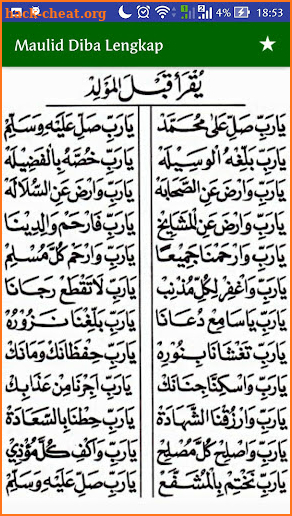 hack-cheat.org 18:53
Maulid Diba Lengkap
يُقْرَأُ قَبْلَ الْمَوْلِدِ
يَارَبِّ صَلِّ عَلىٰ مُحَمَّدْ يَارَبِّ صَلِّ عَلَيْهِ وَسَلِّمْ
يَارَبِّ بَلِّغْهُ الْوَسِيْلَهْ يَارَبِّ خُصَّهُ بِالْفَضِيْلَهْ
يَارَبِّ وَارْضَ عَنِ الصَّحَابَهْ يَارَبِّ وَارْضَ عَنِ السُّلَالَهْ
يَارَبِّ وَارْضَ عَنِ الْمَشَايِخْ يَارَبِّ فَارْحَمْ وَالِدِيْنَا
يَارَبِّ وَارْحَمْنَا جَمِيْعًا يَارَبِّ وَارْحَمْ كُلَّ مُسْلِمْ
يَارَبِّ وَاغْفِرْ لِكُلِّ مُذْنِبْ يَارَبِّ لَاتَقْطَعْ رَجَانَا
يَارَبِّ يَاسَامِعْ دُعَانَا يَارَبِّ بَلِّغْنَا نَزُوْرُهْ
يَارَبِّ تَغْشَانَا بِنُوْرِهْ يَارَبِّ حِفْظَانَكْ وَمَانَكْ
يَارَبِّ وَاسْكِنَّا جِنَانَكْ يَارَبِّ اَجِرْنَا مِنْ عَذَابِكْ
يَارَبِّ وَارْزُقْنَا الشَّهَادَةْ يَارَبِّ حِطْنَا بِالسَّعَادَةْ
يَارَبِّ وَاصْلِحْ كُلَّ مُصْلِحْ يَارَبِّ وَاكْفِ كُلَّ مُؤْذِيْ
يَارَبِّ نَخْتِمْ بِالْمُشَفَّعْ يَارَبِّ صَلِّ عَلَيْهِ وَسَلِّمْ